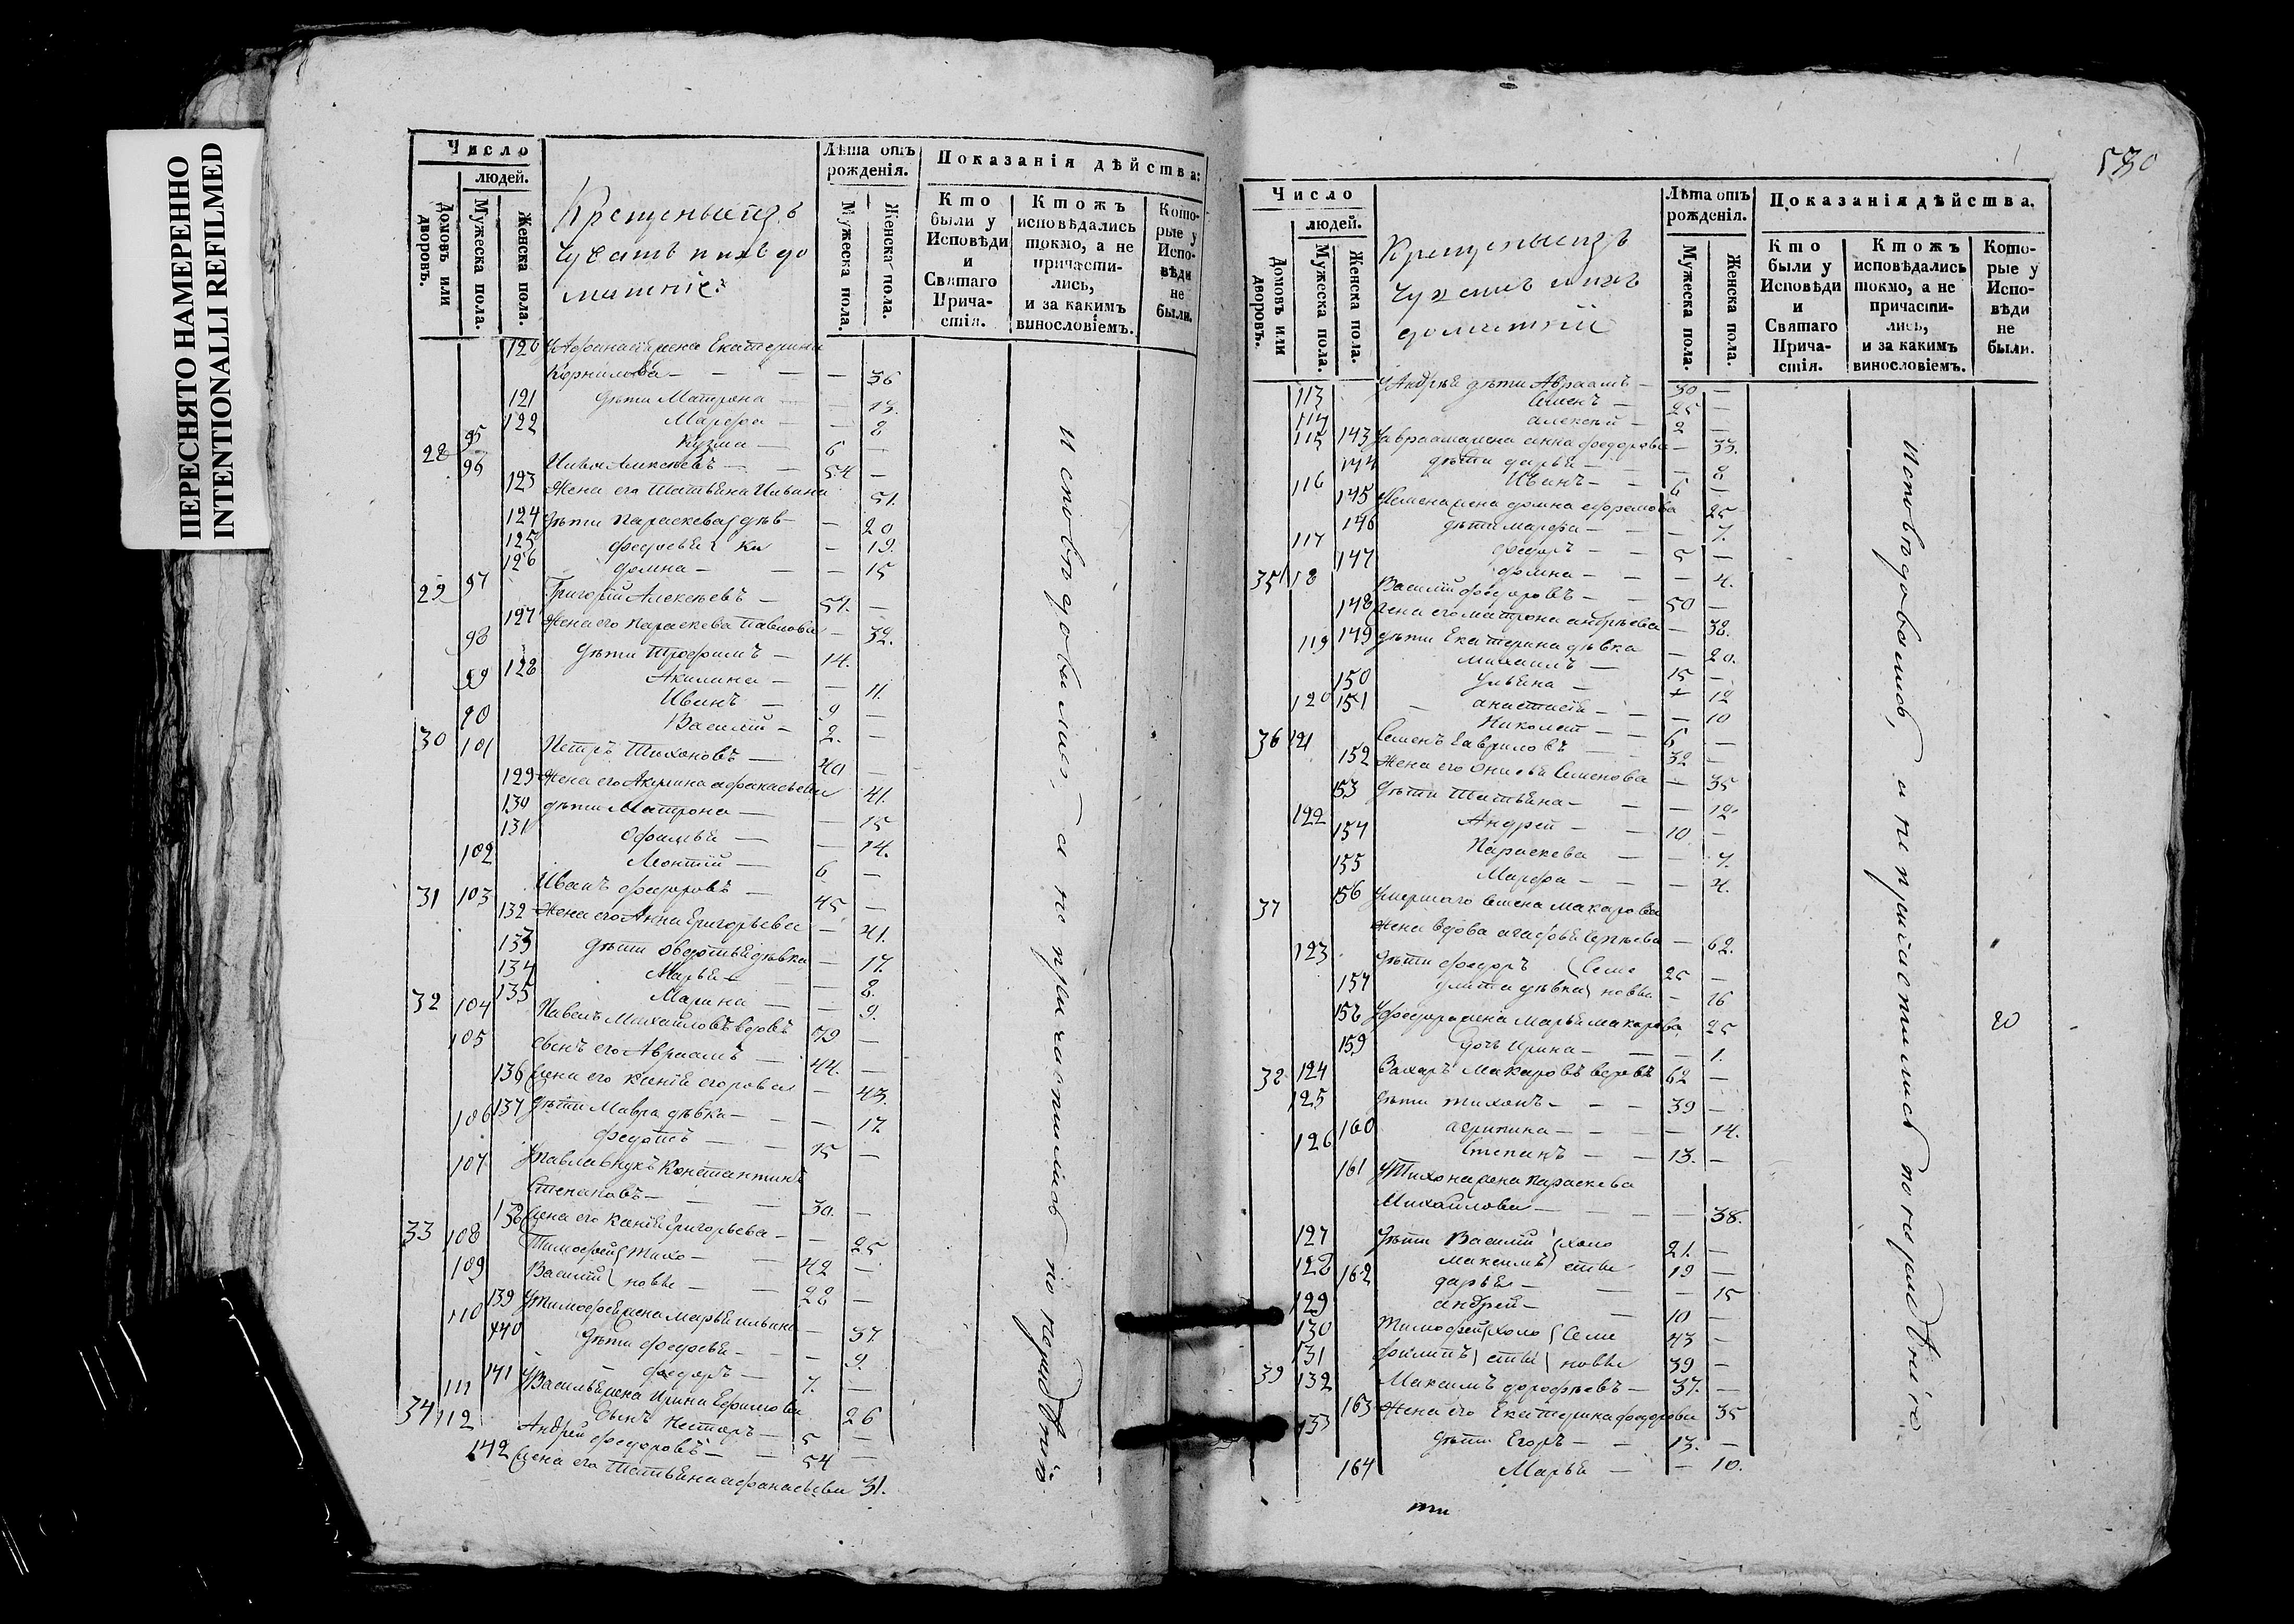 ПЕРЕСНЯТО НАМЕРЕННО
INTENTIONALLI REFILMED
Число
людей.
Домовъ или дворовъ.
Мужеска пола.
Женска пола.
Крещеныеизъ
Чувашъ иихъ до
машніе:
Лѣта отъ рожденія.
Мужеска пола.
Женска пола.
Показанія дѣйства:
Кто были у Исповѣди и Святаго Причастія.
Ктожъ исповѣдались токмо, а не причастились, и за какимъ винословіемъ.
Которые у Исповѣди не были.
120 Екатерина
Корнилова — 36
121 дѣти Матрона — 13.
122 Марфа — 8
95 Кузма — 6 —
28 96 Алексѣевъ — 54 —
123 Жена его Татьяна 51.
124 дѣти Параскева дѣв — 20
125 Федосья ки — 19.
126 Домна — 15
29 97 Григорій Алексѣевъ — 57. —
127 Жена его Параскева Павлова — 32.
98 дѣти Трофимъ — 14.
128 Акилина — 11.
99 Иванъ — 9 —
Василій — 2. —
30 101 Петръ Тихоновъ — 40 —
129 Жена его Акулина Афанасьева 41.
130 дѣти Матрона — 15
131 Офимья — 14.
102 Леонтій — 6 —
31 103 Иванъ Федоровъ — 45 —
132 Жена его Анна Григорьева — 41.
133 дѣти дѣвка — 17.
134 Марья — 8.
135 Марина — 9.
32 104 Павелъ Михайловъ вдовъ 79 —
105 сынъ его Авраамъ — 44. —
136 жена его Ксенія Егорова — 43.
137 дѣти Мавра дѣвка — 17.
106 Федотъ — 15 —
107 УПавла внукъ Константинъ
Степановъ — 30. —
138 жена его Ксенія Григорьева — 25
33 108 Тимофей Тихо — 42 —
109 Василій новы — 28 —
139 УТимофея жена Марья Ильина — 37
140 дѣти Федосья — 9.
110 Федоръ — 7. —
141 УВасилья жена Ирина Ефимова 26
111 Сынъ Несторъ — 5 —
34 112 Андрей Федоровъ — 54 —
142 жена его Татьяна Афанасьева 31.
Исповѣдовались, а не причастились по нерадѣнію
530
Число
людей.
Домовъ или дворовъ.
Мужеска пола.
Женска пола.
Крещеныеизъ
Чувашъ иихъ
домашній
Лѣта отъ рожденія.
Мужеска пола.
Женска пола.
Показанія дѣйства.
Кто были у Исповѣди и Святаго Причастія.
Ктожъ исповѣдались токмо, а не причастились, и за какимъ винословіемъ.
Которые у Исповѣди не были.
113 УАндрея дѣти Авраамъ — 30 —
114 Семенъ — 25 —
115 Алексѣй — 2 —
143 УАвраама жена Анна Федорова — 33.
144 дѣти Дарья — 8
116 Иванъ — 6 —
145 УСемена жена Домна Ефремова 25
146 дѣти Марфа — 7.
117 Федоръ — 5 —
147 Домна — 4.
35 118 Василій Федоровъ — 50 —
148 жена его Матрона Андреева — 38.
149 дѣти Екатерина дѣвка — 20.
119 Михаилъ — 15 —
150 Ульяна — 12
151 Анастасія — 10
120 Николай — 6 —
36 121 Семенъ Гавриловъ — 32 —
152 Жена его Семенова — 35
153 дѣти Татьяна — 12.
122 Андрей — 10 —
154 Параскева — 7.
155 Марфа — 4.
37 156 Умершаго Семена Макарова
Жена вдова Агафья Сергѣева — 62.
123 дѣти Федоръ Семе 25 —
157 Улита дѣвка новы — 16
158 УФедора жена Марья Макарова 25
159 дочь Ирина — 1.
20
38 124 Захаръ Макаровъ вдовъ 62 —
125 дѣти Тихонъ — 39 —
160 Агрипина — 14.
126 Степанъ — 13. —
161 УТихона жена Параскева
Михайлова — 38.
127 дѣти Василій холо 21. —
128 Максимъ сты 19 —
162 Дарья — 15
129 Андрей — 10 —
130 Тимофей холо Семе 43 —
131 Филипъ сты новы 39 —
39 132 Максимъ Дорофѣевъ — 37. —
163 Жена его Екатерина Федорова 35
133 дѣти Егоръ — 13. —
164 Марья — 10.
Исповѣдовались, а не причастились по нерадѣнію